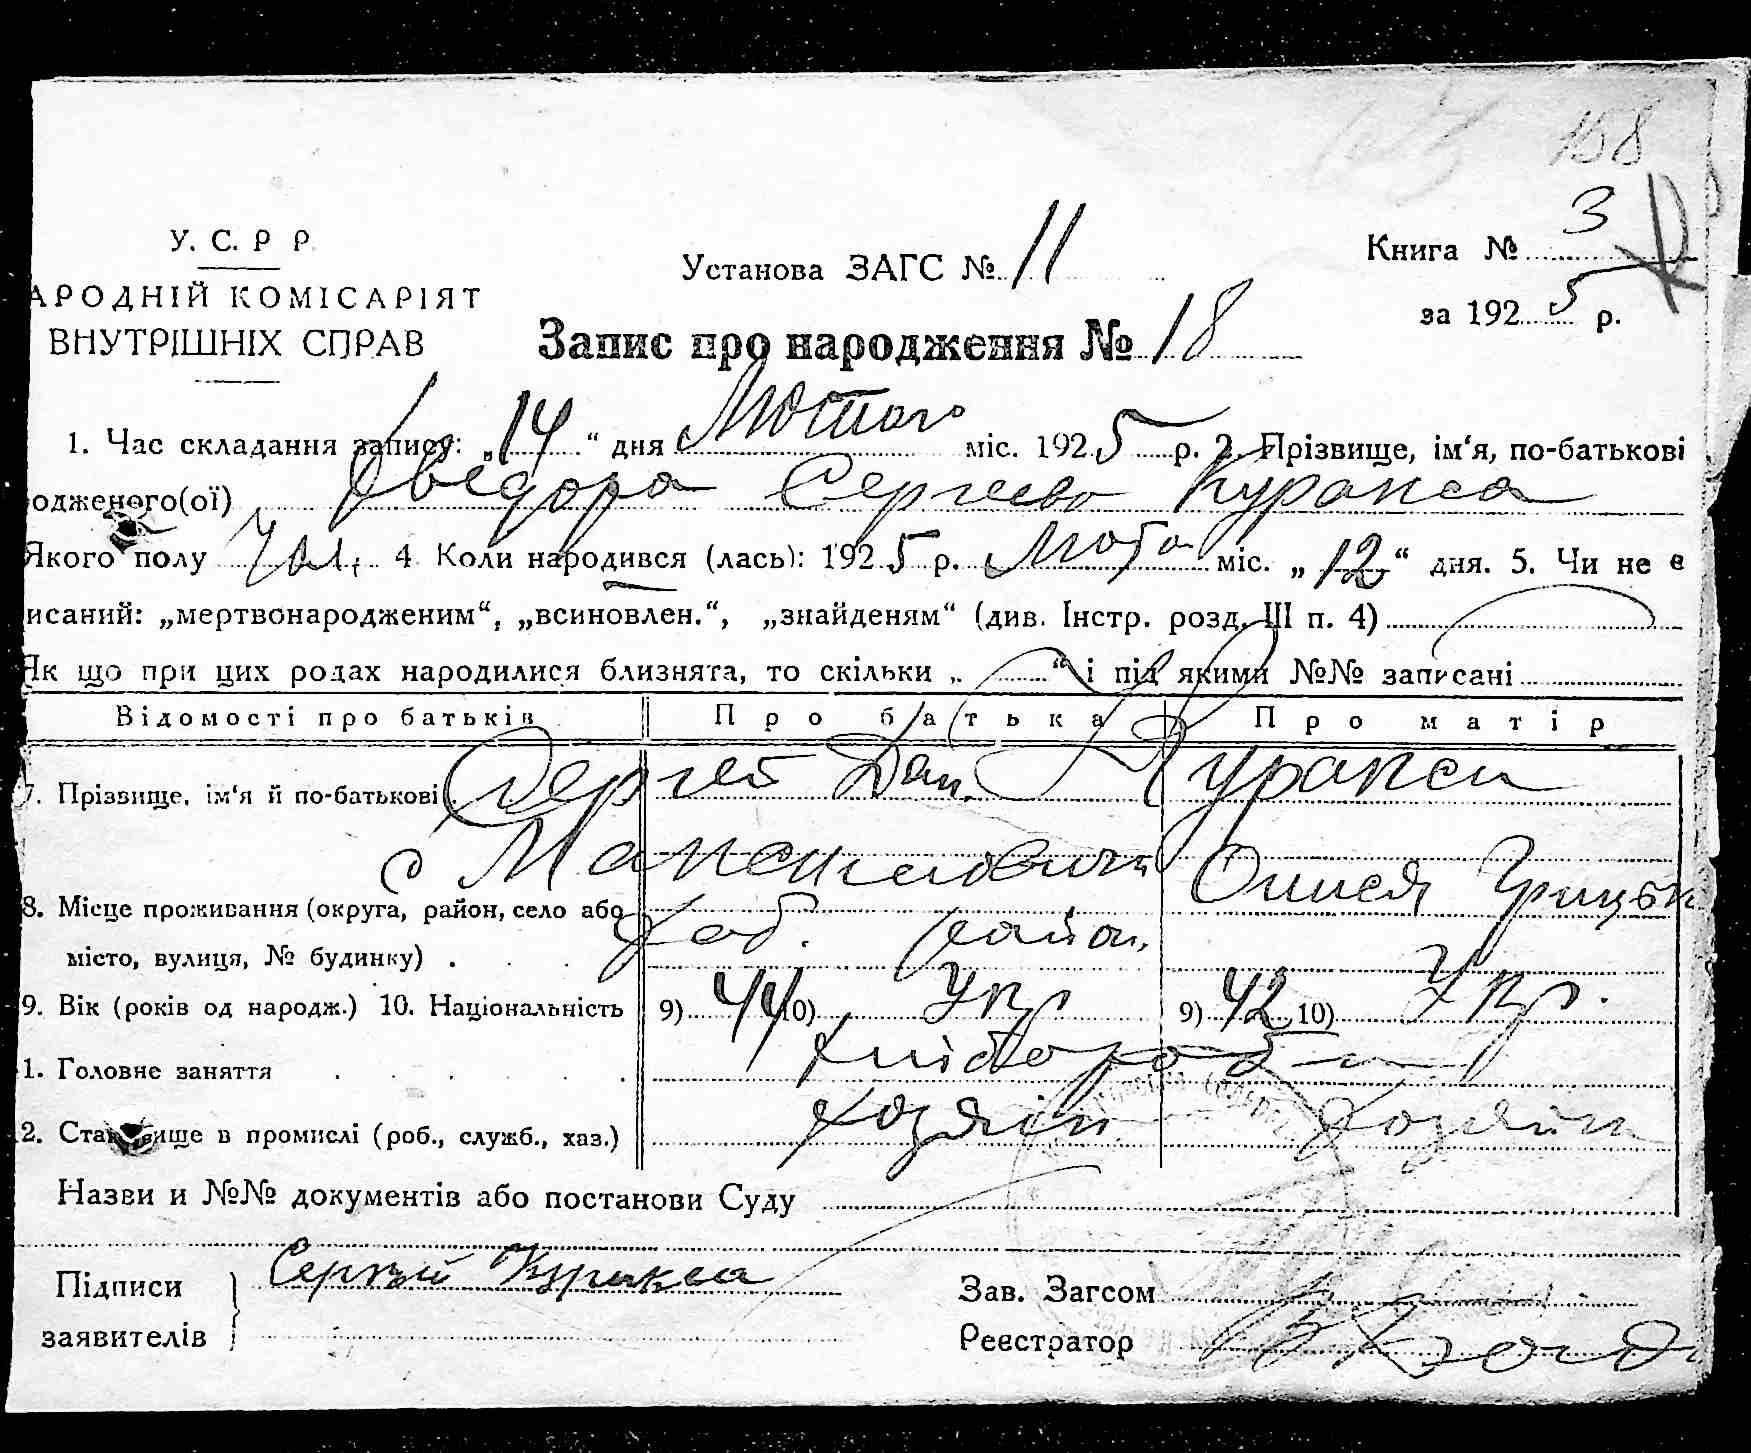 158
У. С. Р Р.
АРОДНІЙ КОМІСАРІЯТ
ВНУТРІШНІХ СПРАВ
Установа ЗАГС № 11
Книга № 3
за 1925 р.
Запис про народження № 18
1. Час складання запису: „14“ дня Лютого міс. 1925 р. 2. Прізвище, ім‘я, по-батькові
одженого(ої) Сергеево Куракса
Якого полу чол. 4 Коли народився (лась): 1925 р. Люто міс. „12“ дня. 5. Чи не є
исаний: „мертвонародженим“, „всиновлен.“, „знайденям“ (див. Інстр. розд. III п. 4)
Як що при цих родах народилися близнята, то скільки „ “ і під якими №№ записані
Відомості про батьків Про батька Про матір
7. Прізвище, ім‘я й по-батькові Сергей Дан. Куракса
с Максимович Описея Грицьк
8. Місце проживання (округа, район, село або
місто, вулиця, № будинку) район.
9. Вік (років од народж.) 10. Національність 9) 44 10) Укр 9) 42 10) Укр.
1. Головне заняття хлібороб
2. Становище в промислі (роб., служб., хаз.) хозяїн хозяйн
Назви и №№ документів або постанови Суду
Підписи заявителів Сергѣй Куракса
Зав. Загсом
Реєстратор